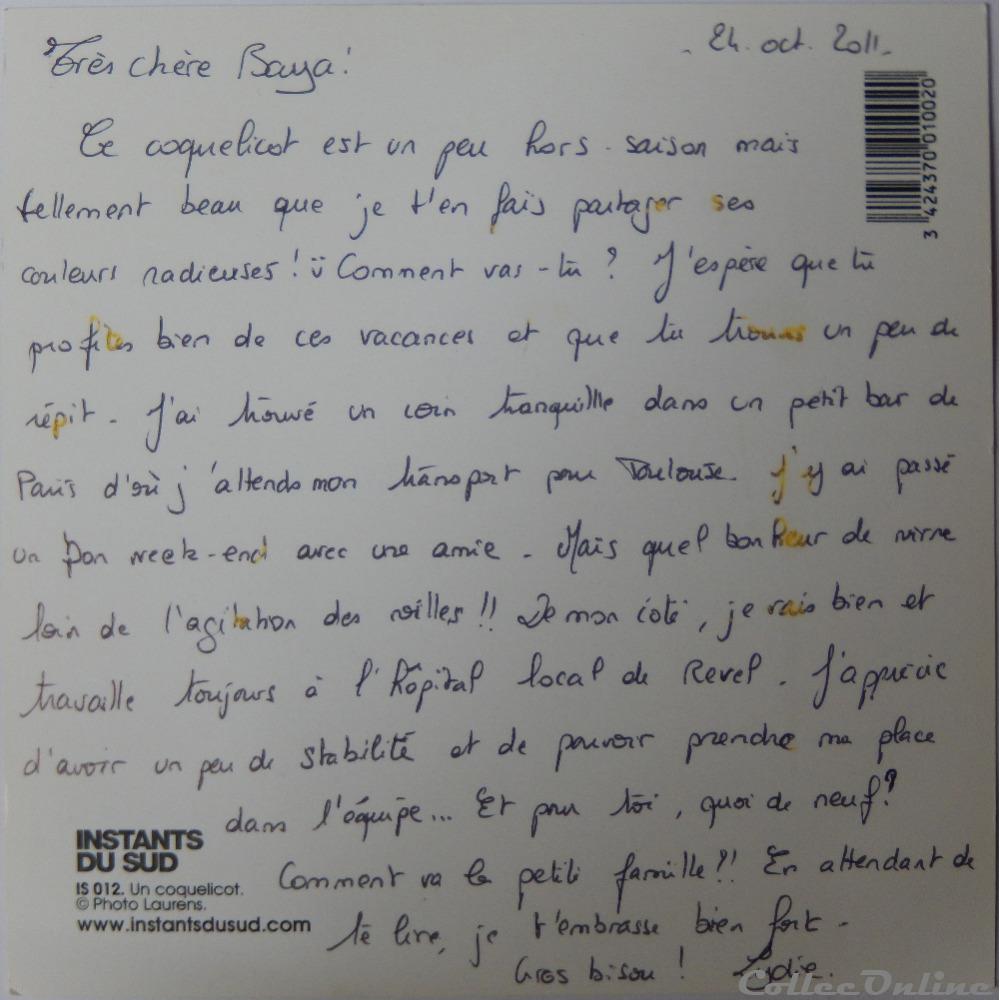 - 24. oct. 2011-
Très chère Baya!
Ce coquelicot est un peu hors-saison mais
tellement beau que je t'en fais partager ses
couleurs radieuses! ü Comment vas-tu? J'espère que tu
profites bien de ces vacances et que tu trouves un peu de
répit. J'ai trouvé un coin tranquille dans un petit bar de
Paris d'où j'attends mon transport pour Toulouse. J'y ai passé
un bon week-end avec une amie. Mais quel bonheur de vivre
loin de l'agitation des villes!! De mon côté, je vais bien et
travaille toujours à l'hôpital local de Revel. J'apprécie
d'avoir un peu de stabilité et de pouvoir prendre ma place
dans l'équipe... Et pour toi, quoi de neuf?
Comment va la petite famille?! En attendant de
te lire, je t'embrasse bien fort-
Gros bisou! Lydie.
3 424370 010020
INSTANTS
DU SUD
IS 012. Un coquelicot.
© Photo Laurens.
www.instantsdusud.com
CollecOnline